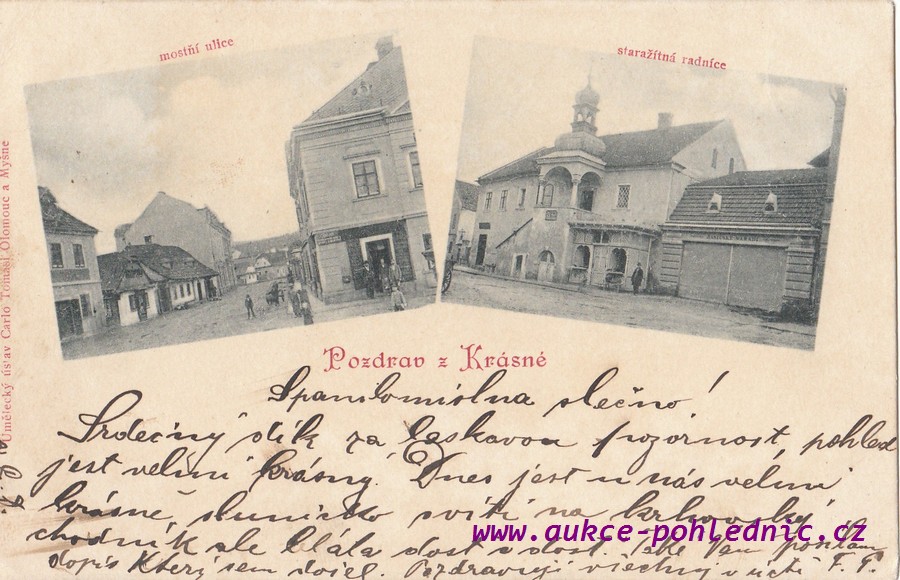 mostní ulice
staražitná radnice
Umělecký ústav Carlo Tomasi Olomouc a Myšne
Pozdrav z Krásné
Spanilomislna slečno!
Srdečný dík za laskavou pozornost, pohled
jest velmi krásný. Dnes jest u nás velmi
krásně, slunicko svítí na krhovský
chodník ale bláta dost a dost. Také Vám posílám
dopis který sem došel. Pozdravují všechny v úctě F. P.
www.aukce-pohlednic.cz